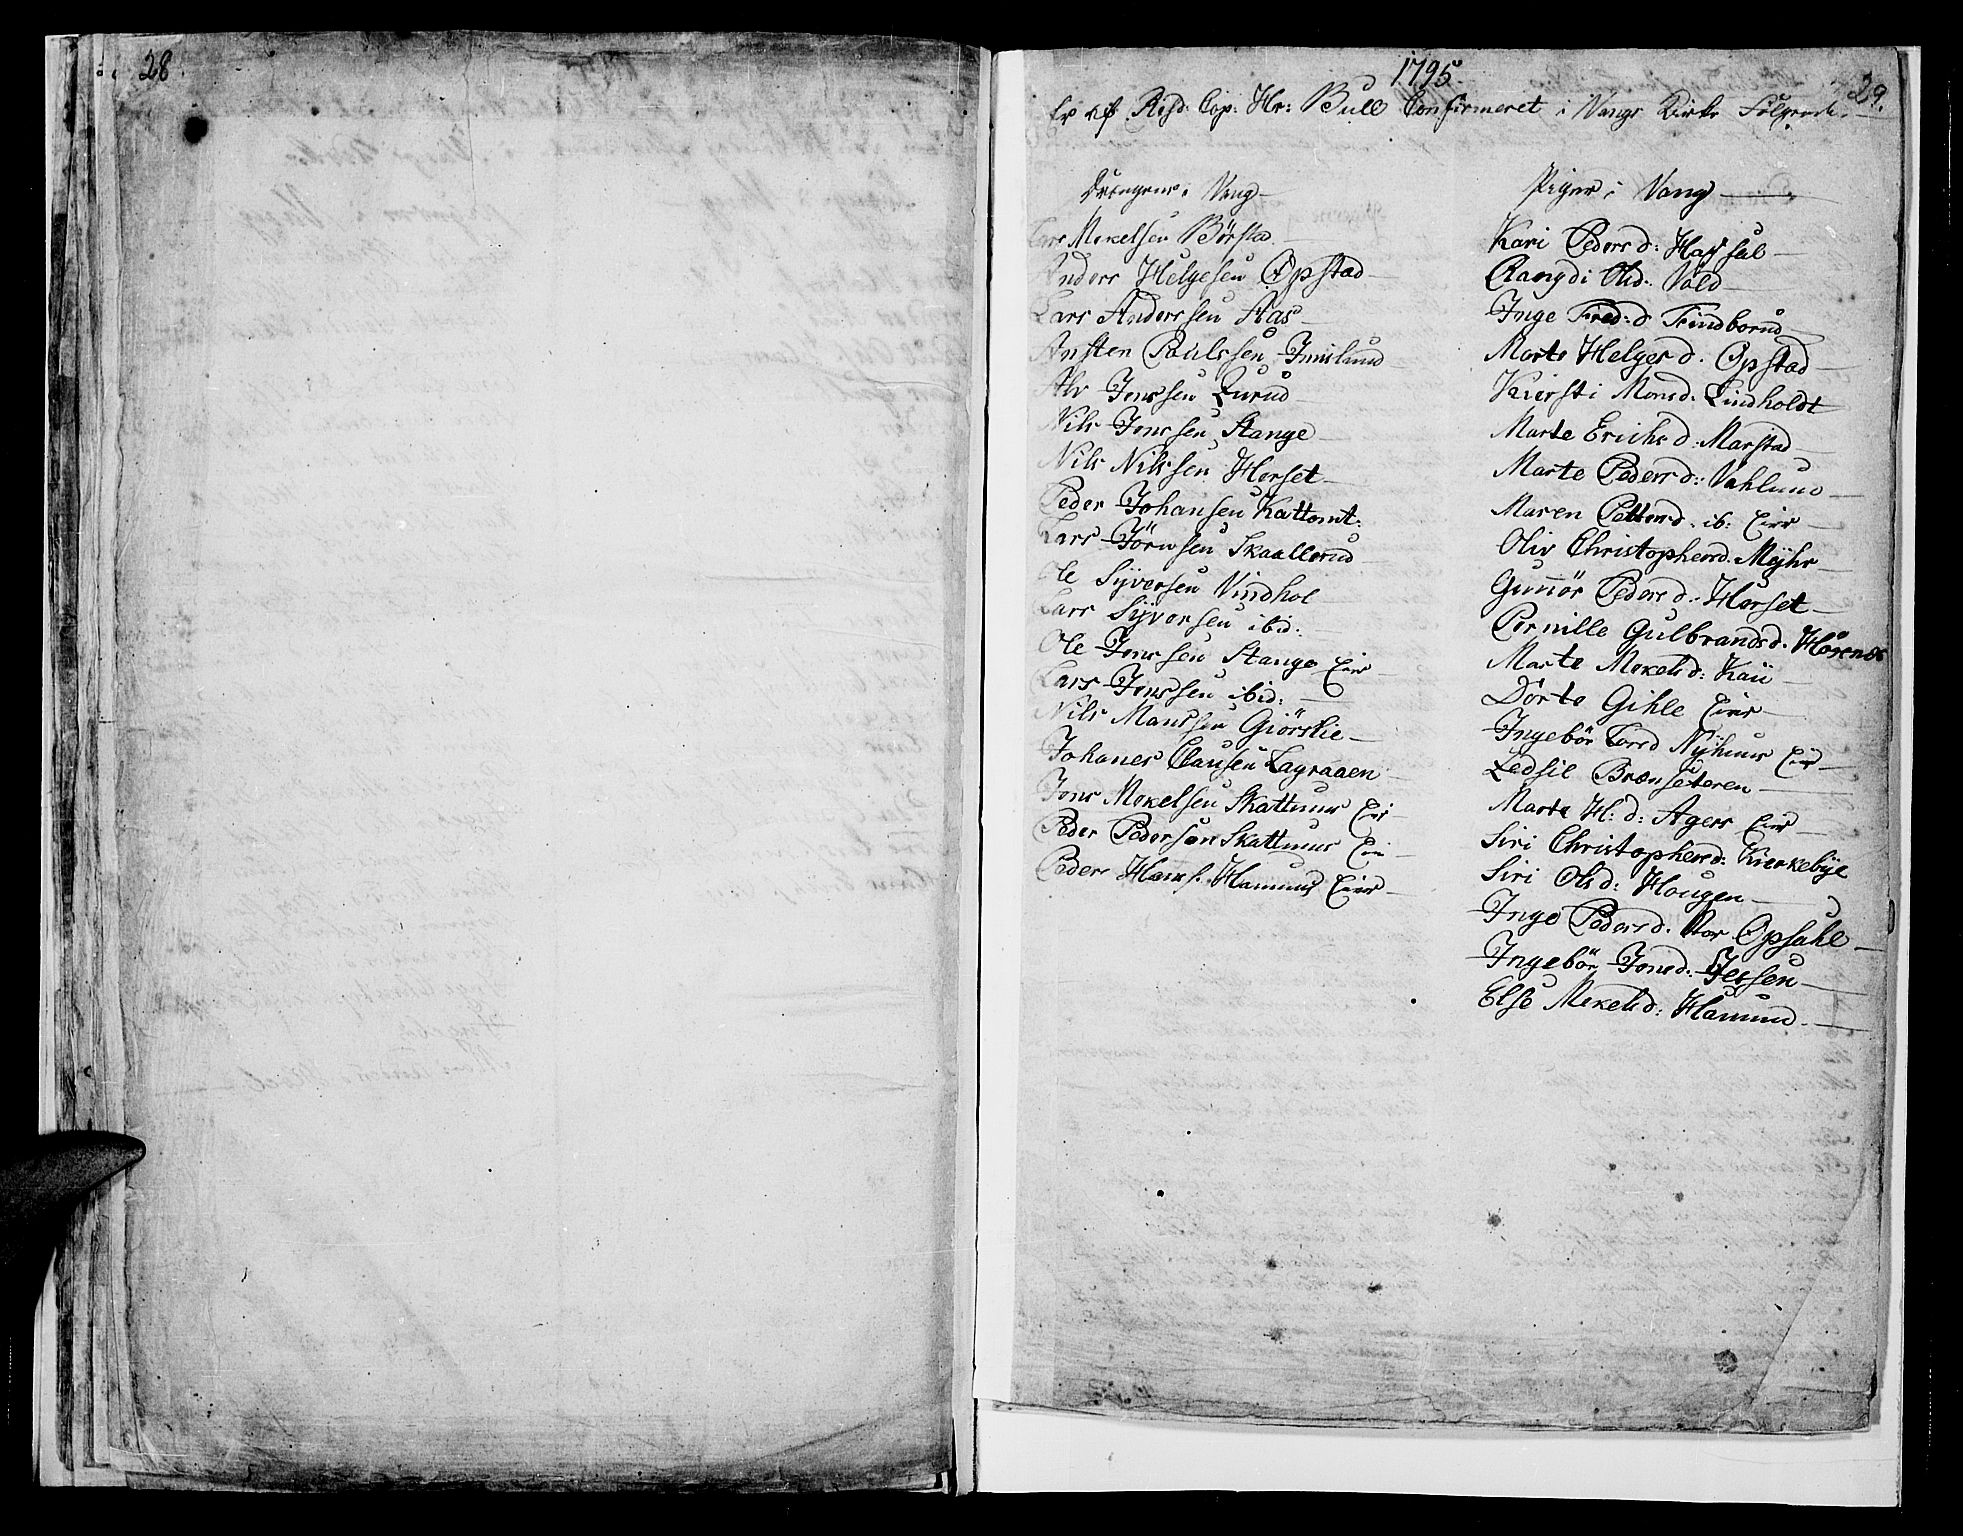 28.
1795.
29.
Er af Resd: Cap: Hr: Bull Confirmeret i Vangs Kirke Følgende.
Drengene i Vang
Lars Mekelsen Børstad
Anders Helgesen Opstad
Lars Anderssen Aas
Ansten Paulssen Imislund
Alv Jenssen Lurud
Nils Jonssen Stange
Nils Nilssen Horset
Peder Johansen Kattomt:
Lars Jörnsen Skaallerud
Ole Syversen Vindhol
Lars Syversen ibid:
Ole Jonssen Stange Eier
Lars Jonssen ibid:
Nils Manssen Giörslie
Johanes Clausen Lagraaen
Jens Mekelsen Skattum Eier
Peder Pedersen Skattum Eier
Peder Hans. Hamund Eier
Piger i Vang
Kari Peders d: Hafsal
Rangdi Olsd: Vold
Inge Fred: d Trindborud
Marte Helges d. Opstad
Kiersti Monsd: Lindholdt
Marte Erichs d: Marstad
Marte Peders d: Vahlund
Maren Petters d. ib: Eier
Oliv Christophersd. Myhr
Gunnör Peders d: Horset
Pernille Gulbrandsd. Hösenes
Marte Mekelsd: Kaü
Dörte Gihle Eier
Ingebör Larsd Nyhuus Eier
Zedsil Brænseteren
Marte H: d: Agers Eier
Siri Christophersd: Kierkebye
Siri Olsd: Hougen
Inge Pedersd. Stor Opsahl
Ingebör Jonsd: Jessen
Else Mekelsd: Hamund